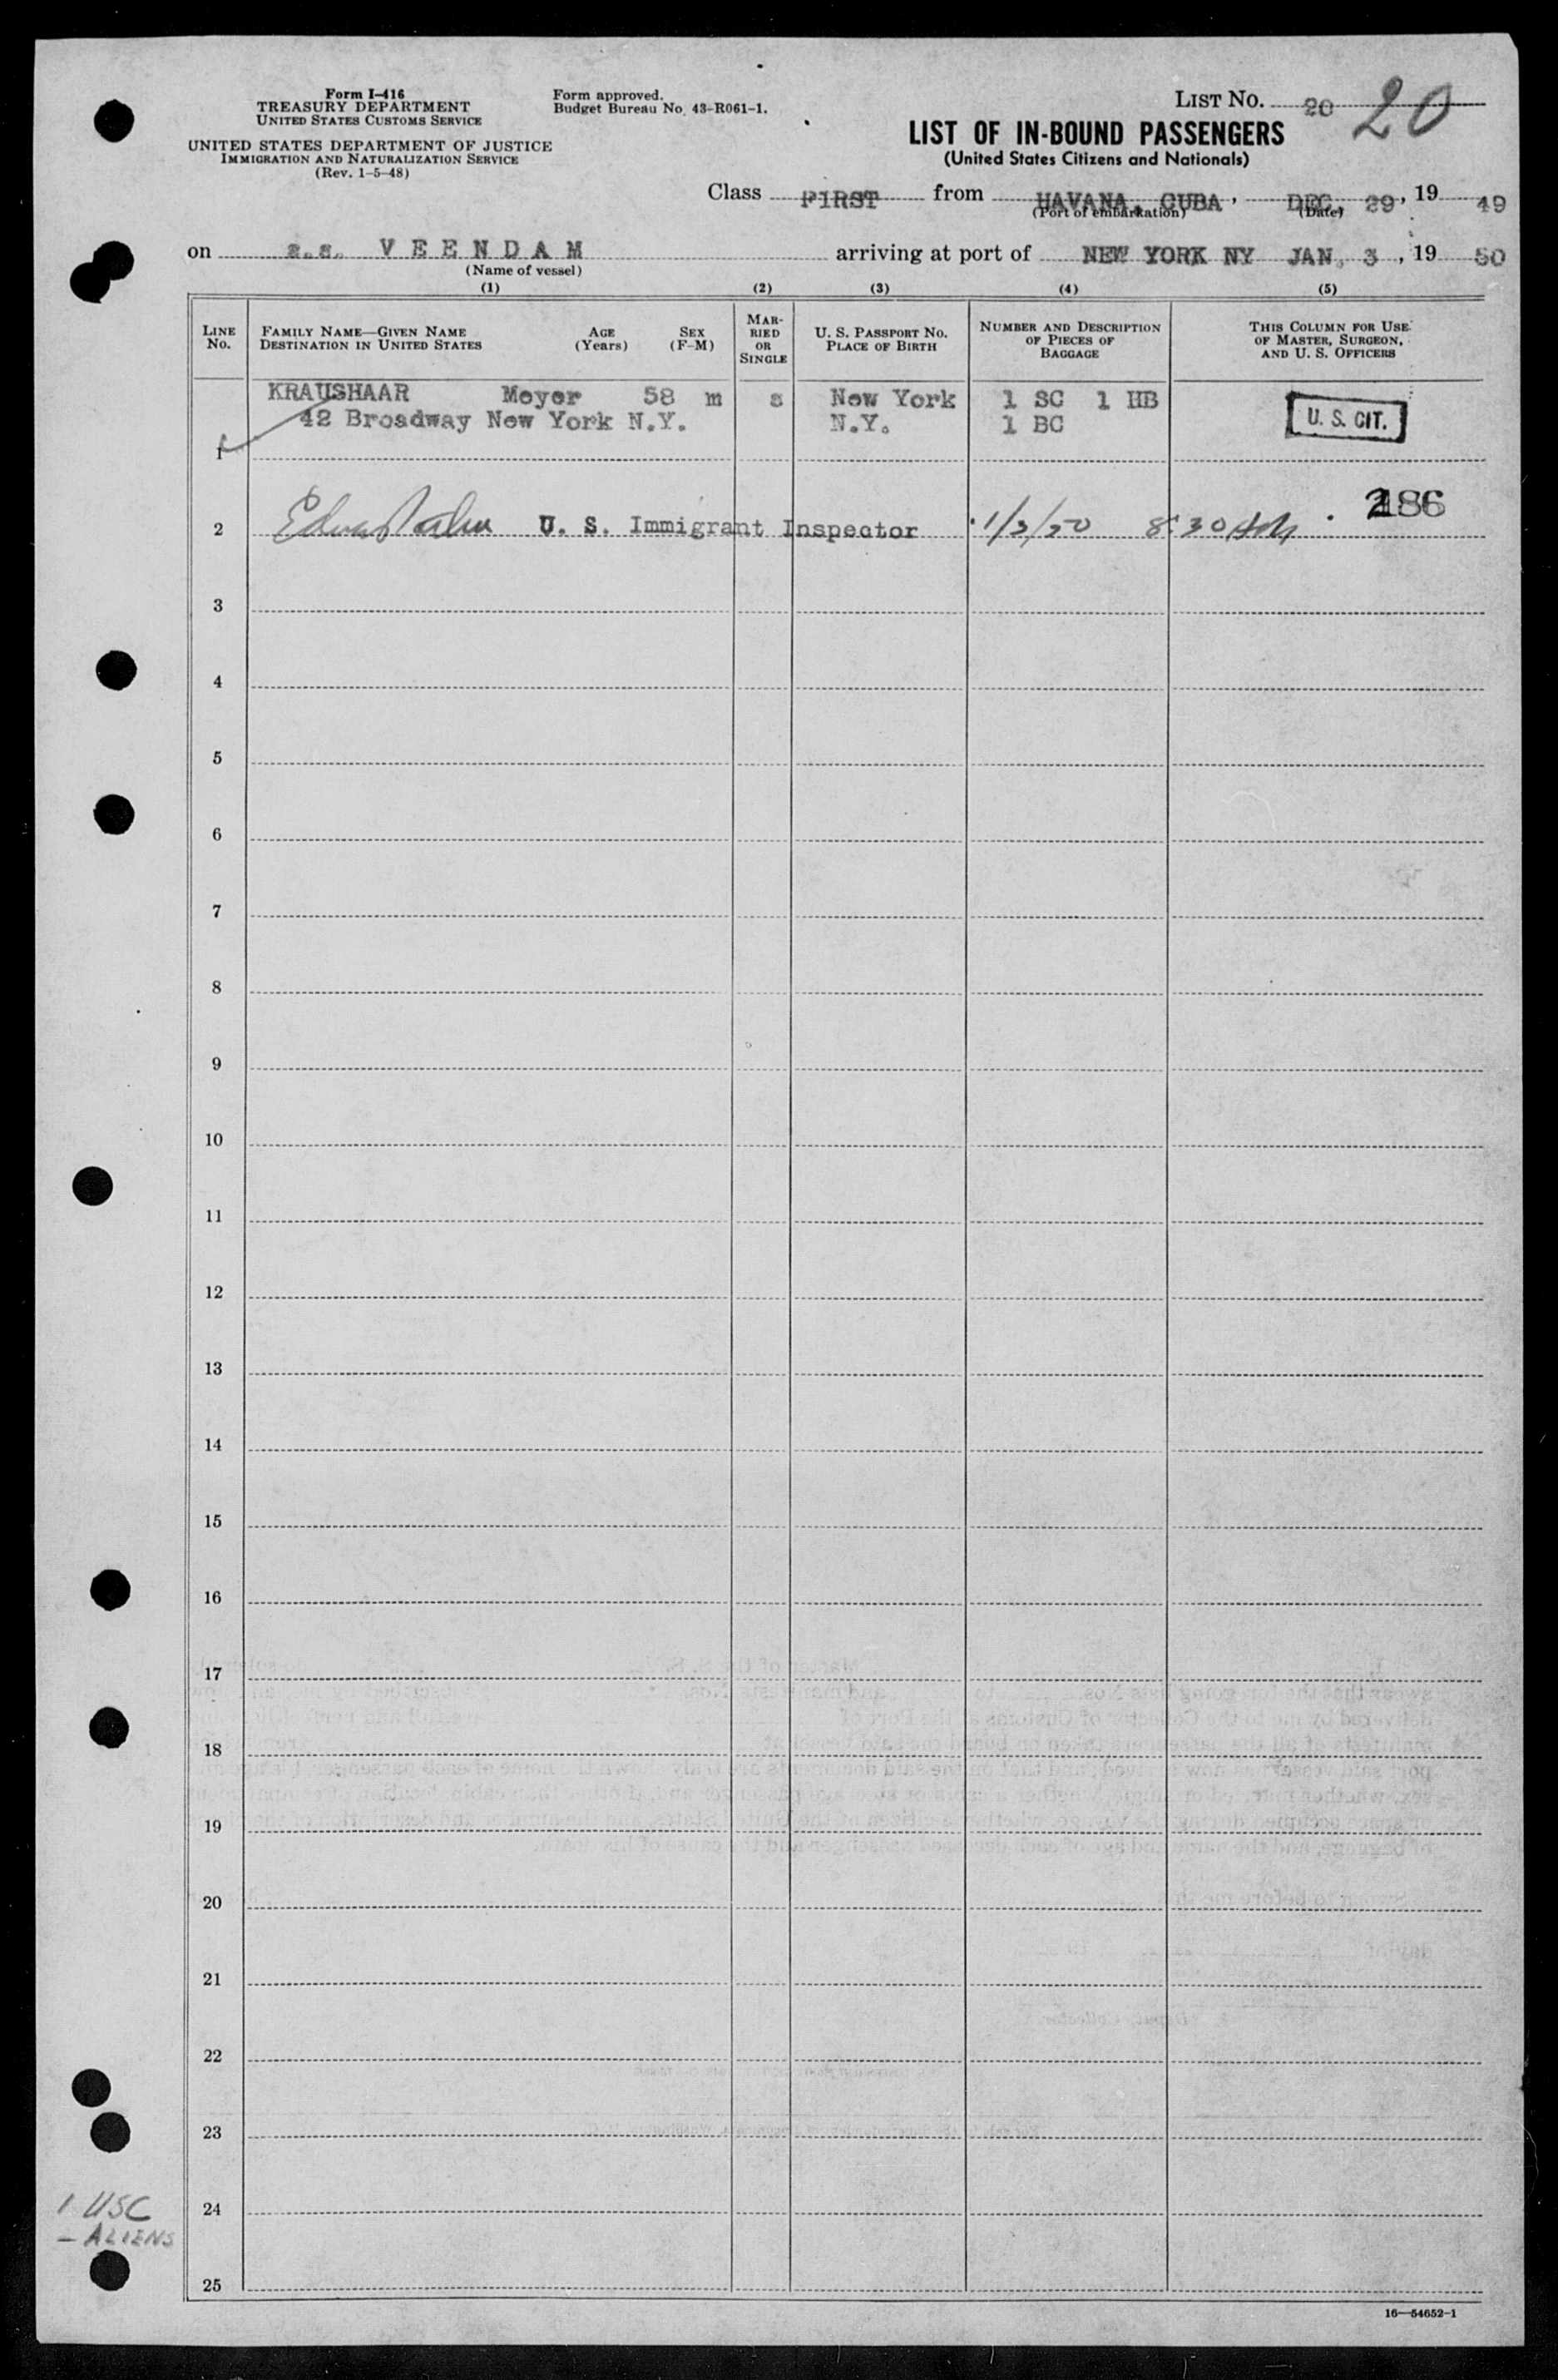 Form I-416
TREASURY DEPARTMENT
UNITED STATES CUSTOMS SERVICE
UNITED STATES DEPARTMENT OF JUSTICE
IMMIGRATION AND NATURALIZATION SERVICE
(Rev. 1-5-48)
Form approved.
Budget Bureau No. 43-R061-1.
LIST NO. 20 20
LIST OF IN-BOUND PASSENGERS
(United States Citizens and Nationals)
Class FIRST from HAVANA, CUBA, DEC. 29, 19 49
(Port of embarkation) (Date)
on s.s. VEENDAM arriving at port of NEW YORK NY JAN. 3, 19 50
(Name of vessel)
(1) (2) (3) (4) (5)
LINE NO.
FAMILY NAME—GIVEN NAME AGE SEX
DESTINATION IN UNITED STATES (Years) (F-M)
MARRIED OR SINGLE
U. S. PASSPORT NO.
PLACE OF BIRTH
NUMBER AND DESCRIPTION
OF PIECES OF
BAGGAGE
THIS COLUMN FOR USE
OF MASTER, SURGEON,
AND U. S. OFFICERS
KRAUSHAAR Meyer 58 m s New York 1 SC 1 HB
42 Broadway New York N.Y. N.Y. 1 BC
U. S. CIT.
1
2 U. S. Immigrant Inspector 1/3/50 8:30 AM 186
3
4
5
6
7
8
9
10
11
12
13
14
15
16
17
18
19
20
21
22
23
24
25
1 USC
— ALIENS
16—54652-1